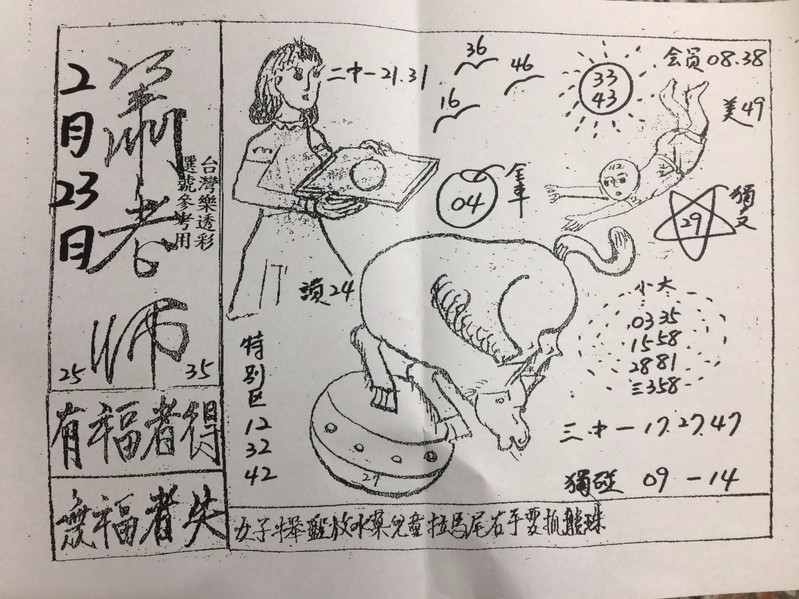 2月23日
蕭老師
台灣樂透彩
選號參考用
25 35
有福者得
無福者失
二中一21.31
36
46
16
33
43
会员08.38
美49
04
獨支
29
讃24
小大
03 35
15 58
28 81
三358
特別区
12
32
42
27
三.中一17.27.47
獨碰 09-14
女子 放水菓兒童拉馬尾右手要抓龍珠